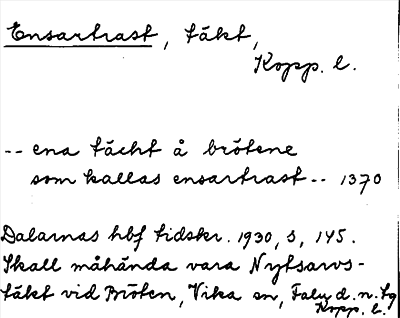 Ensartrast, täkt,
Kopp. l.
-- ena täckt å brötene
som kallas ensartrast -- 1370
Dalarnas hbf tidskr. 1930, s, 145.
Skall måhända vara Nytsarvs-
täkt vid Bröten, Vika sn, Falu d. n. tg
Kopp. l.